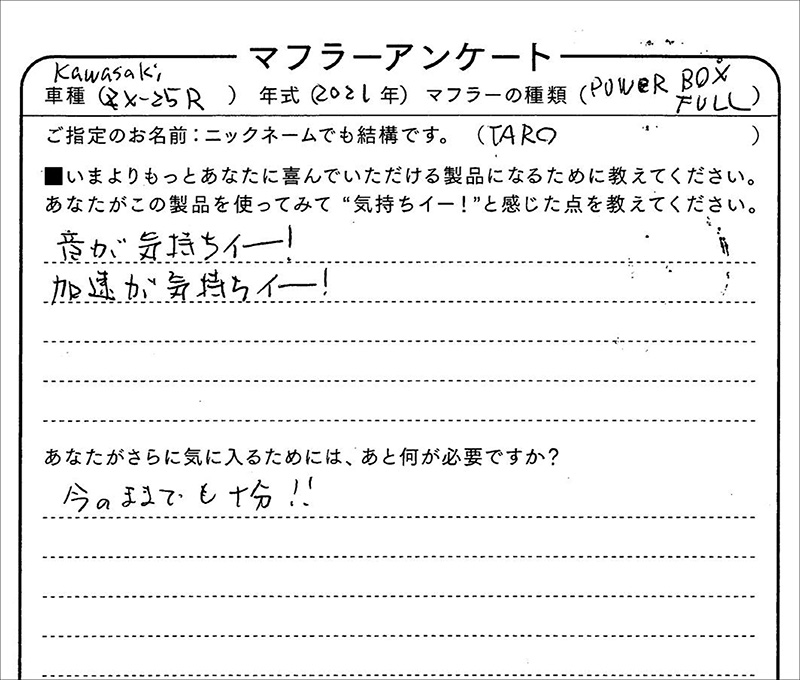 マフラーアンケート
Kawasaki
車種（ZX-25R ） 年式（2021年） マフラーの種類（POWER BOX FULL）
ご指定のお名前：ニックネームでも結構です。（TARO ）
■いまよりもっとあなたに喜んでいただける製品になるために教えてください。
あなたがこの製品を使ってみて “気持ちイー！”と感じた点を教えてください。
音が気持ちイー！
加速が気持ちイー！
あなたがさらに気に入るためには、あと何が必要ですか？
今のままでも十分！！